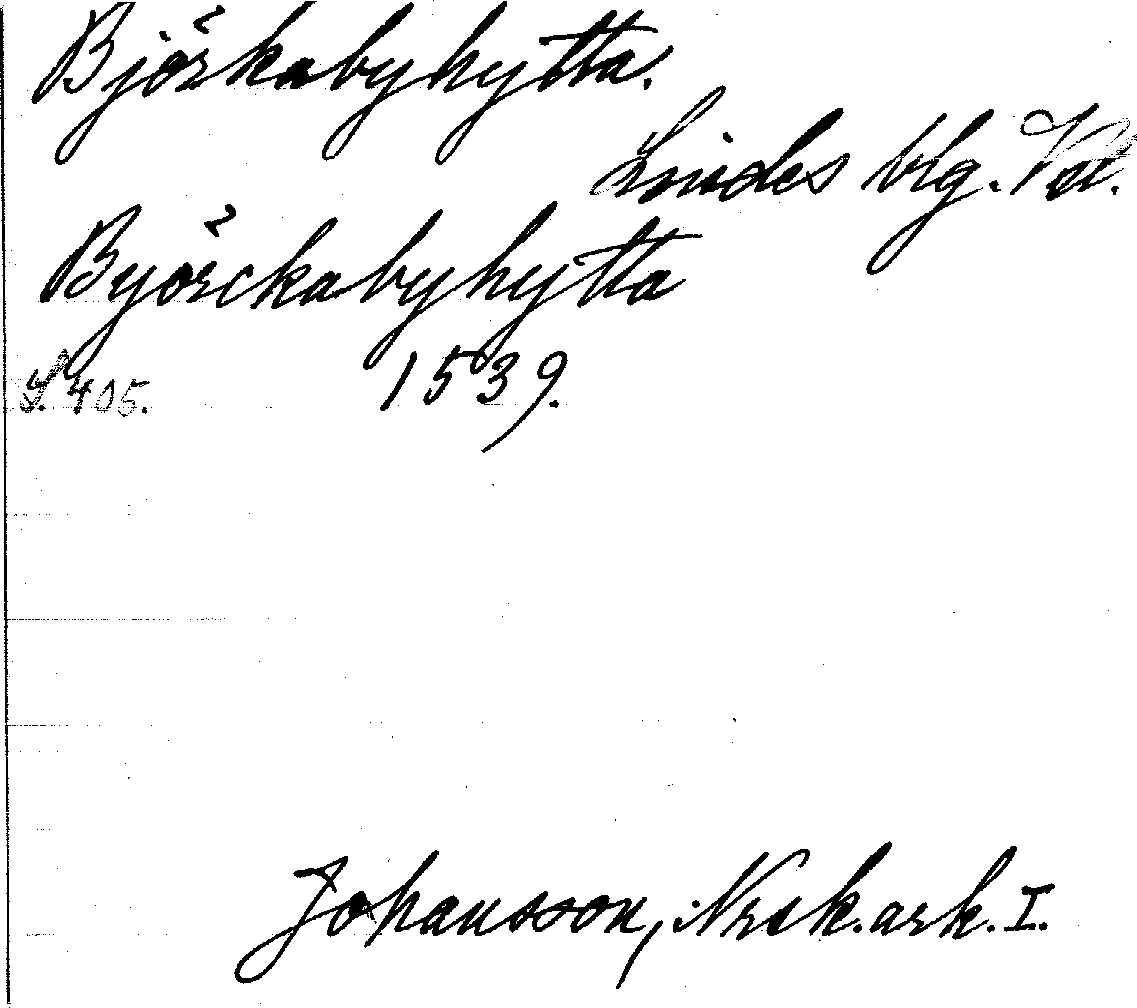 Björkabyhytta.
Lindes blg. Vstl.
Byörckabyhytta
S. 405. 1539.
Johansson, Nrsk. ark. I.